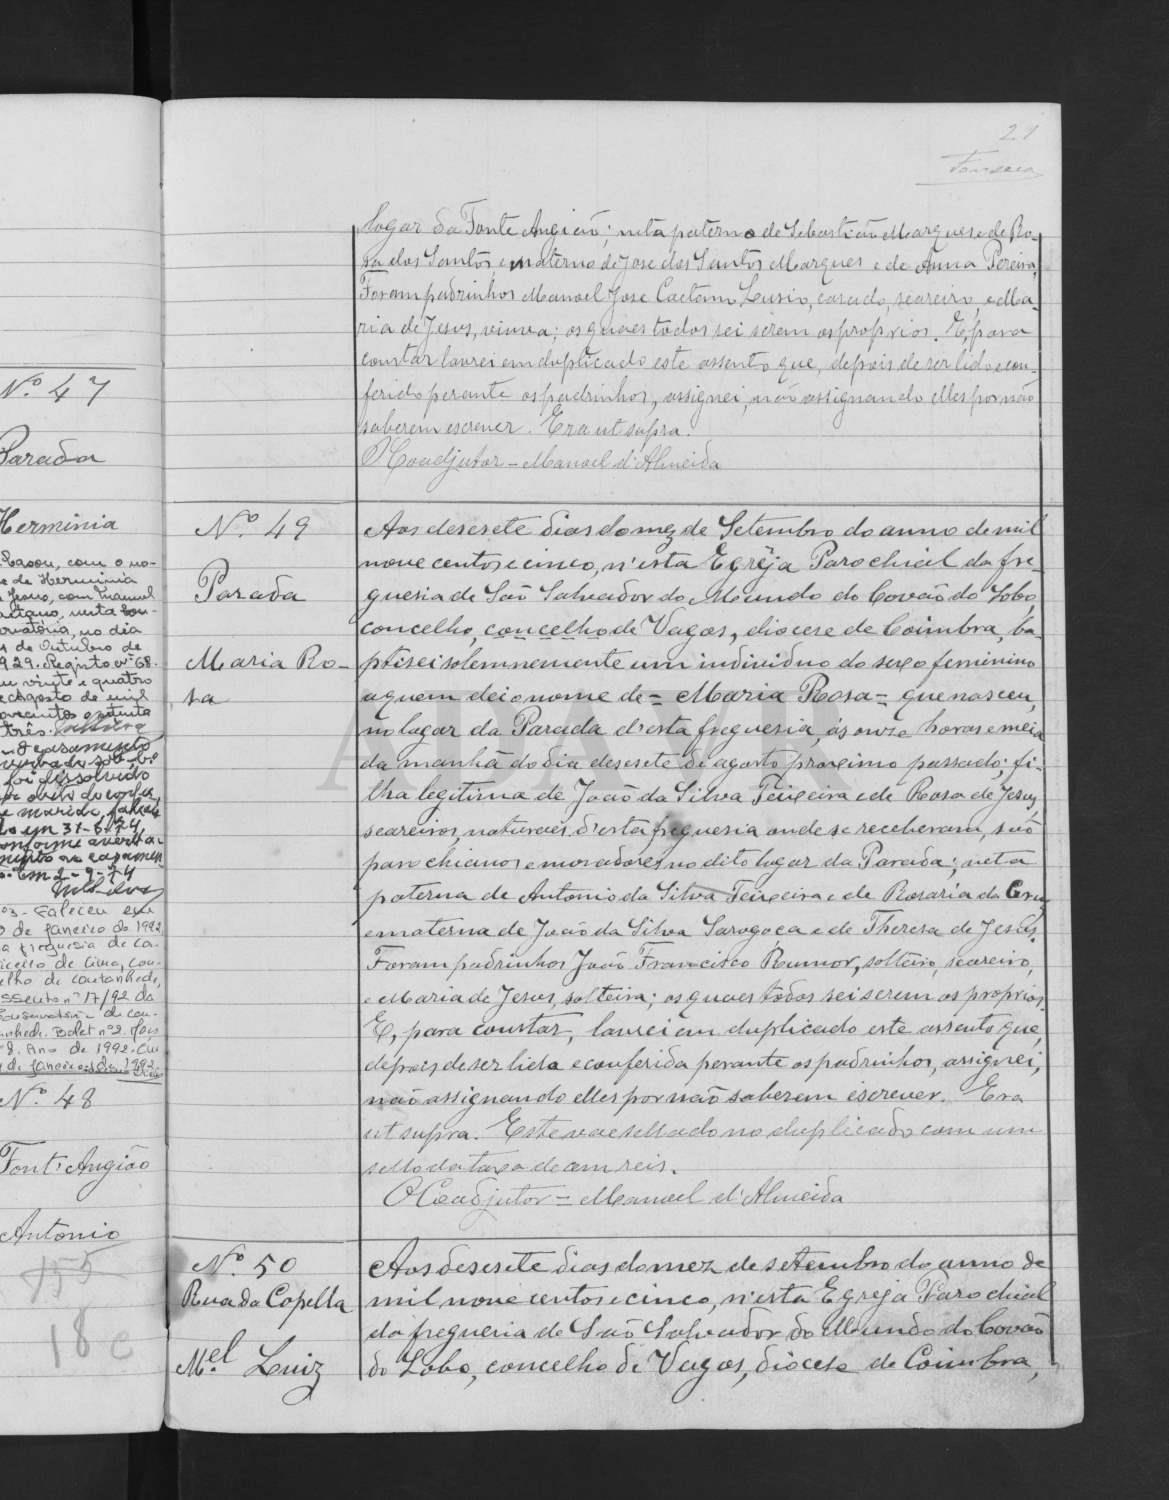 21
Fonseca
logar da Fonte Angião; neta paterna de Sebastião Marques e de Ro-
sa dos Santos, e materna de Jose dos Santos Marques e de Anna Pereira,
Foram padrinhos Manoel Jose Caetano Lusio, casado, seareiro, e Ma-
ria de Jesus, viuva; os quaes todos sei serem os proprios. E, para
constar lavrei em duplicado este assento que, depois de ser lido e con-
ferido perante os padrinhos, assignei, não assignando elles por não
saberem escrever. Era ut supra.
O Coadjutor - Manoel d'Almeida
Nº 47
Parada
Herminia
Casou, com o no-
e de Herminia
Jesus, com Manuel
aetano, nesta Con-
ervatória, no dia
de Outubro de
929. Registo nº 68.
vinte e quatro
Agosto de mil
novecentos e trinta
três.
O casamento
foi dissolvido
por obito do conju-
ge marido, faleci-
do em 31-5-74
conforme averba-
mento ao casamen-
to. Em 2-9-74
nº 3 - Faleceu em
de janeiro de 1992
a freguesia de Ca-
de Cima, con-
elho de Cantanhede,
ssento nº 17/92 da
Conservatória de Can-
nhede. Bolet nº 2. Maço
8. Ano de 1992.
de janeiro de 1992
Nº 48
Font'Angião
Antonio
155
18 c
Nº 49
Parada
Maria Ro-
sa
Aos desesete dias do mez de Setembro do anno de mil
nove centos e cinco, n'esta Egreja Parochial da fre-
guesia de São Salvador do Mundo do Covão do Lobo,
concelho, concelho de Vagos, diocese de Coimbra, ba-
ptisei solemnemente um individuo do sexo feminino
a quem dei o nome de = Maria Rosa = que nasceu,
no logar da Parada d'esta freguesia, ás onze horas e meia
da manhã do dia desesete de agosto proximo passado; fi-
lha legitima de João da Silva Teixeira e de Rosa de Jesus,
seareiros, naturaes d'esta freguesia onde se receberam, são
parochianos e moradores no dito logar da Parada; neta
paterna de Antonio da Silva Teixeira e de Rosaria da Cruz,
e materna de João da Silva Saragoça e de Theresa de Jesus.
Foram padrinhos João Francisco Rumor, solteiro, seareiro,
e Maria de Jesus, solteira; os quaes todos sei serem os proprios.
E, para constar, lavrei em duplicado este assento que,
depois de ser lido e conferido perante os padrinhos, assignei,
não assignando elles por não saberem escrever. Era
ut supra. Este vae sellado no duplicado com um
sello da taxa de cem reis.
O Coadjutor = Manoel d'Almeida
Nº 50
Rua da Capella
Mel Luiz
Aos desesete dias do mez de setembro do anno de
mil nove centos e cinco, n'esta Egreja Parochial
da freguesia de São Salvador do Mundo do Covão
do Lobo, concelho de Vagos, diocese de Coimbra,